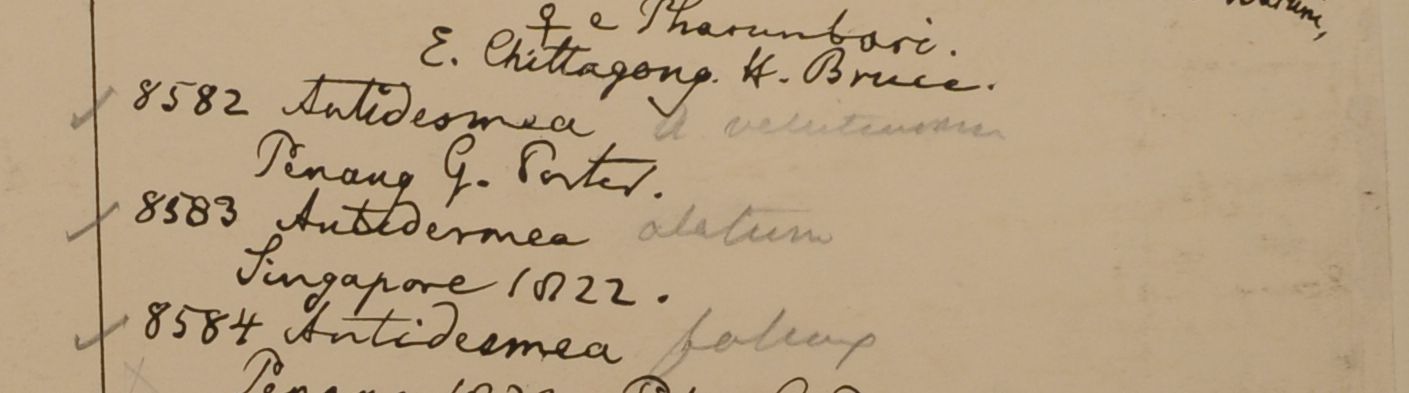 ♀ e Tharunbari.
E. Chittagong. H. Bruce.
8582 Antidesmea
Penang G. Porter.
8583 Antidesmea alatum
Singapore 1822.
8584 Antidesmea
Penang